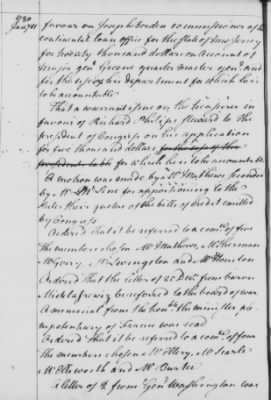 1780
Jany 11
favour on Joseph Borden commissioner of the
continental loan office for the state of New Jersey
for twenty thousand dollars on account of
major genl Greene quarter master genl and
for the use of his department for which he is
to be accountable
That a warrant issue on the treasurer in
favour of Richard Philips steward to the
president of Congress on his application
for two thousand dollars for the use of the
for which he is to be accountable
A motion was made by Mr Mathews seconded
by Mr McLene for apportioning to the
states their quotas of the bills of credit emitted
by Congress
Ordered that it be referred to a comee of five
The members chosen Mr Mathews, Mr Sherman
Mr Gerry, Mr Livingston and Mr Houston
Ordered That the letter of 25 Decr from baron
be referred to the board of war
A memorial from the honble the minister plenipotentiary of France was read
Ordered that it be referred to a comee of four
the members chosen Mr Ellery, Mr Searle
Mr Ellsworth and Mr Burke
A letter of 2 from Genl Washington was